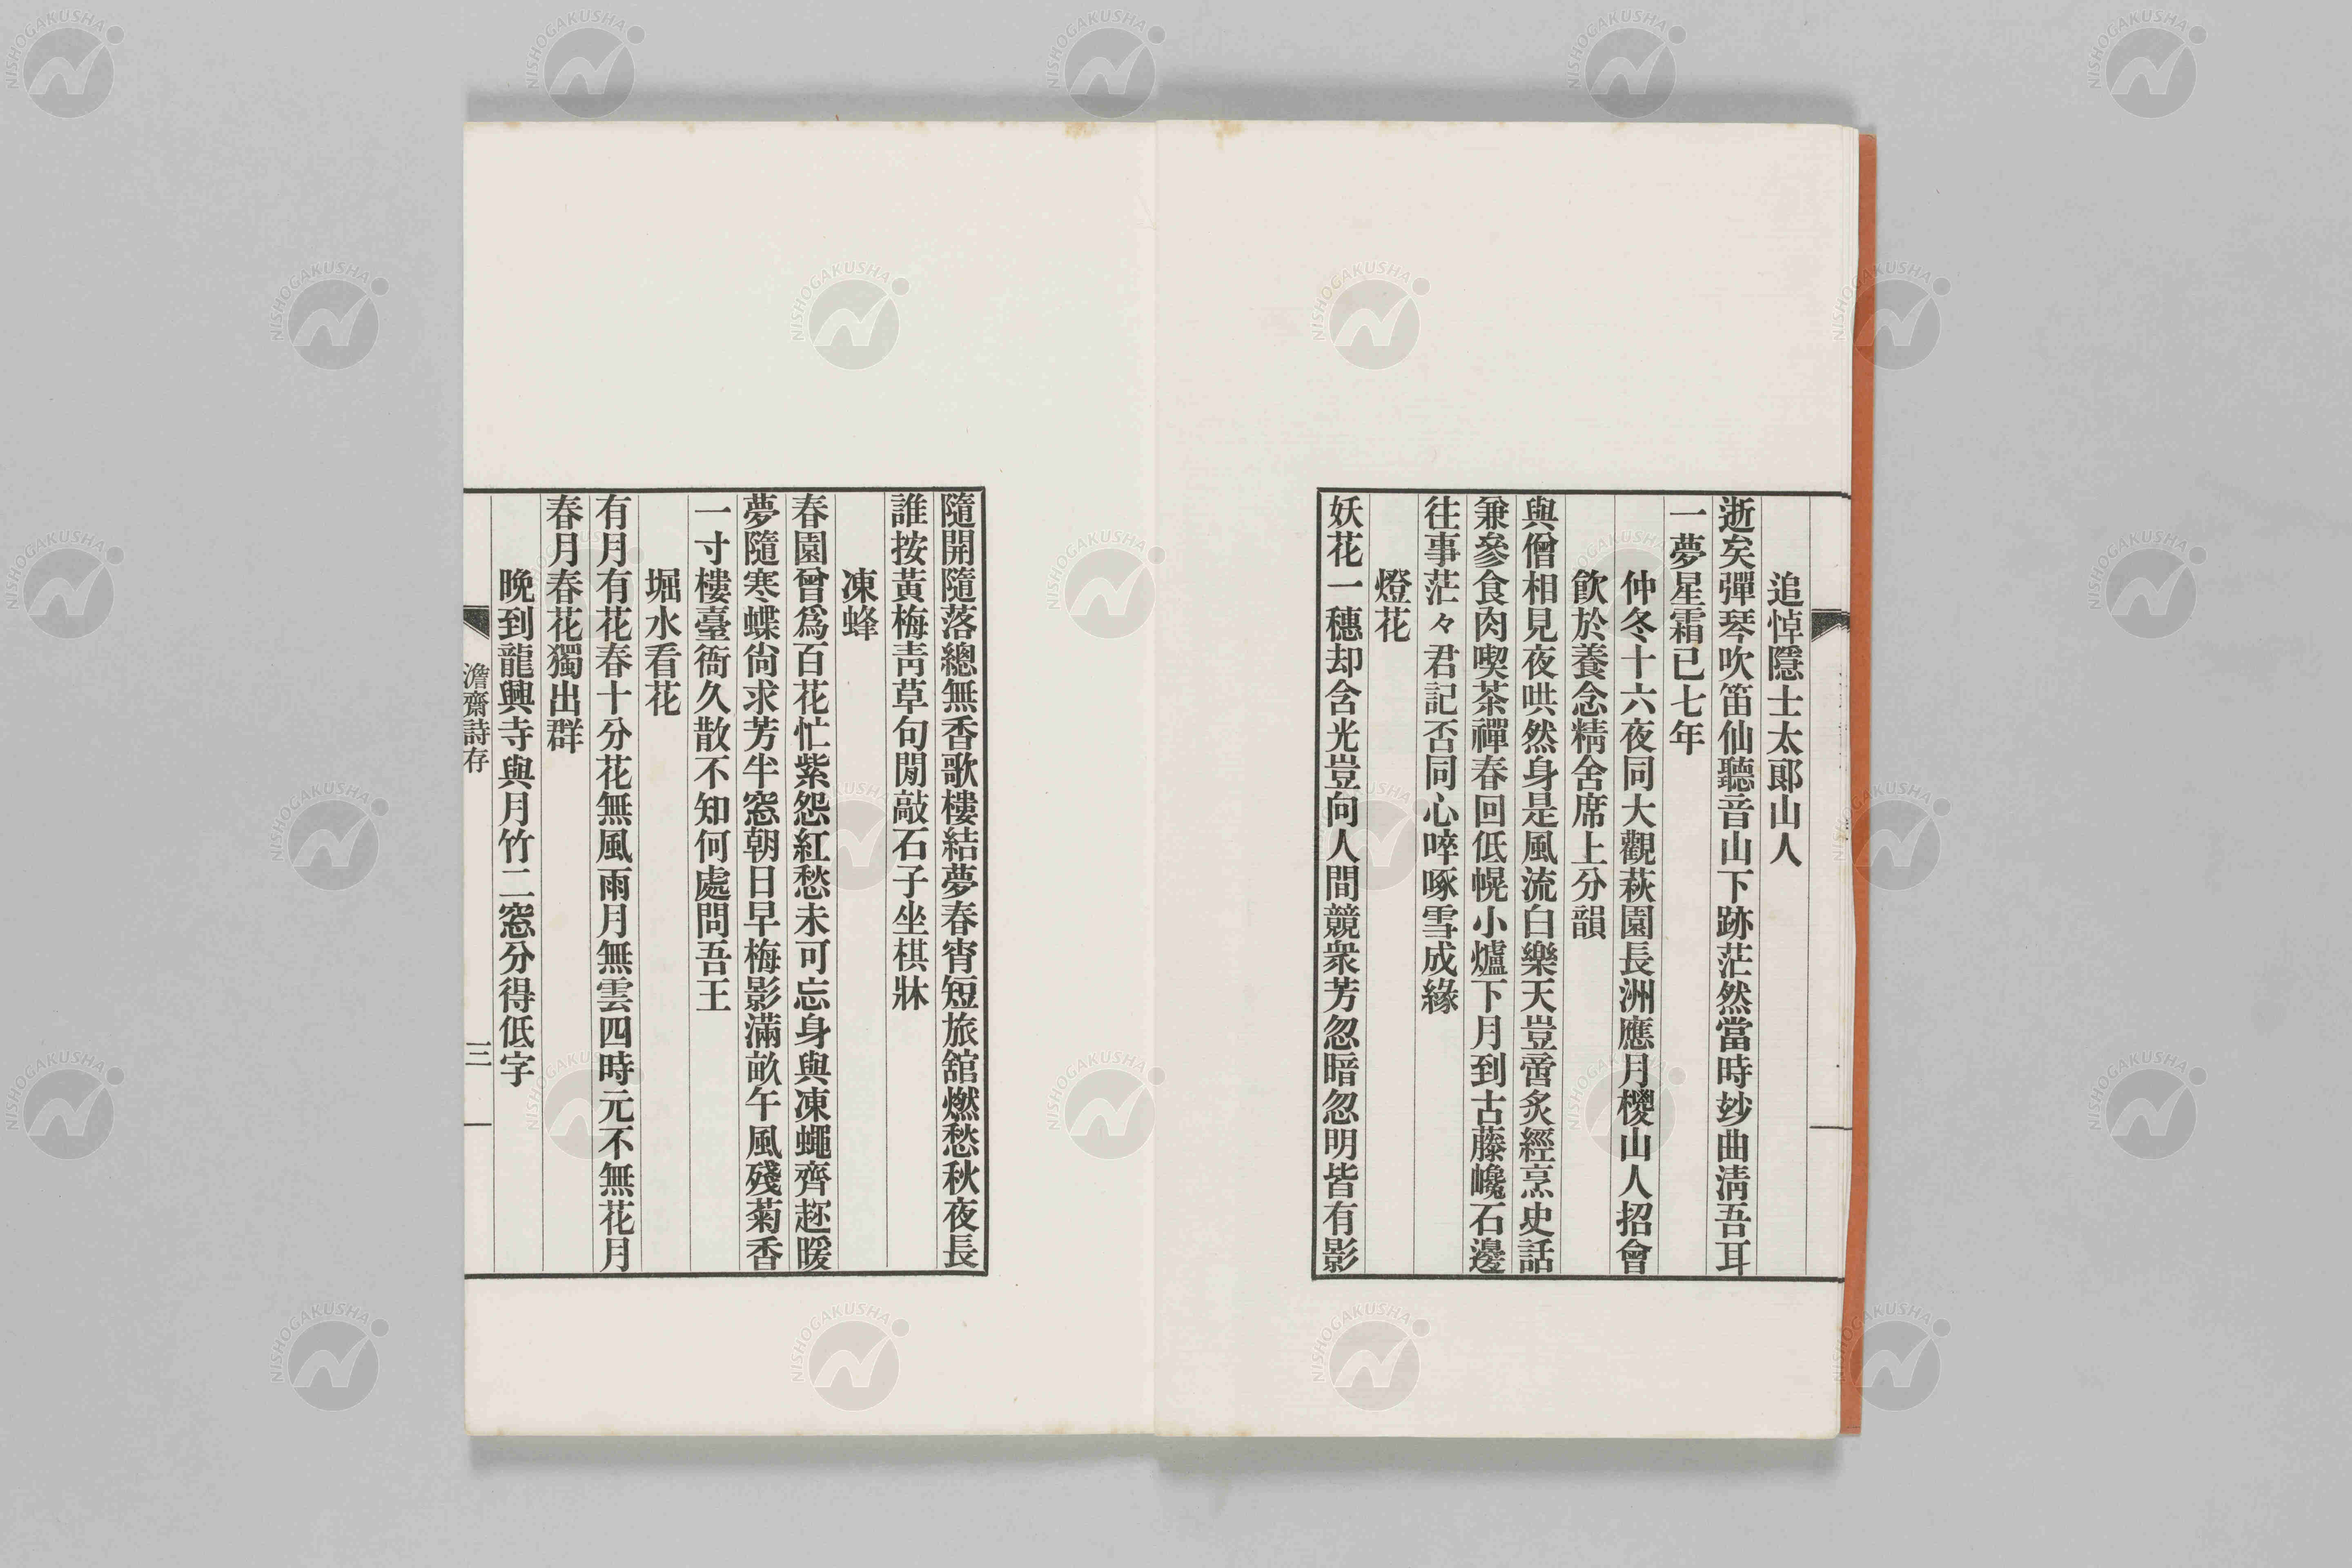 追悼隱士太郞山人
逝矣彈琴吹笛仙聽音山下跡茫然當時妙曲淸吾耳
一夢星霜已七年
仲冬十六夜同大觀萩園長洲應月櫻山人招會
飮於養念精舍席上分韻
與僧相見夜哄然身是風流白樂天豈啻炙經烹史話
兼參食肉喫茶禪春回低幌小爐下月到古藤巉石邊
往事茫々君記否同心啐啄雪成緣
燈花
妖花一穗却含光豈向人間競衆芳忽暗忽明皆有影
隨開隨落總無香歌樓結夢春宵短旅舘燃愁秋夜長
誰按黃梅靑草句閒敲石子坐棋牀
凍蜂
春園曾爲百花忙紫怨紅愁未可忘身與凍蠅齊趂暖
夢隨寒蝶尙求芳半窓朝日早梅影滿畝午風殘菊香
一寸樓臺衙久散不知何處問吾王
堀水看花
有月有花春十分花無風雨月無雲四時元不無花月
春月春花獨出群
晩到龍興寺與月竹二窓分得低字
澹齋詩存
三
NISHOGAKUSHA